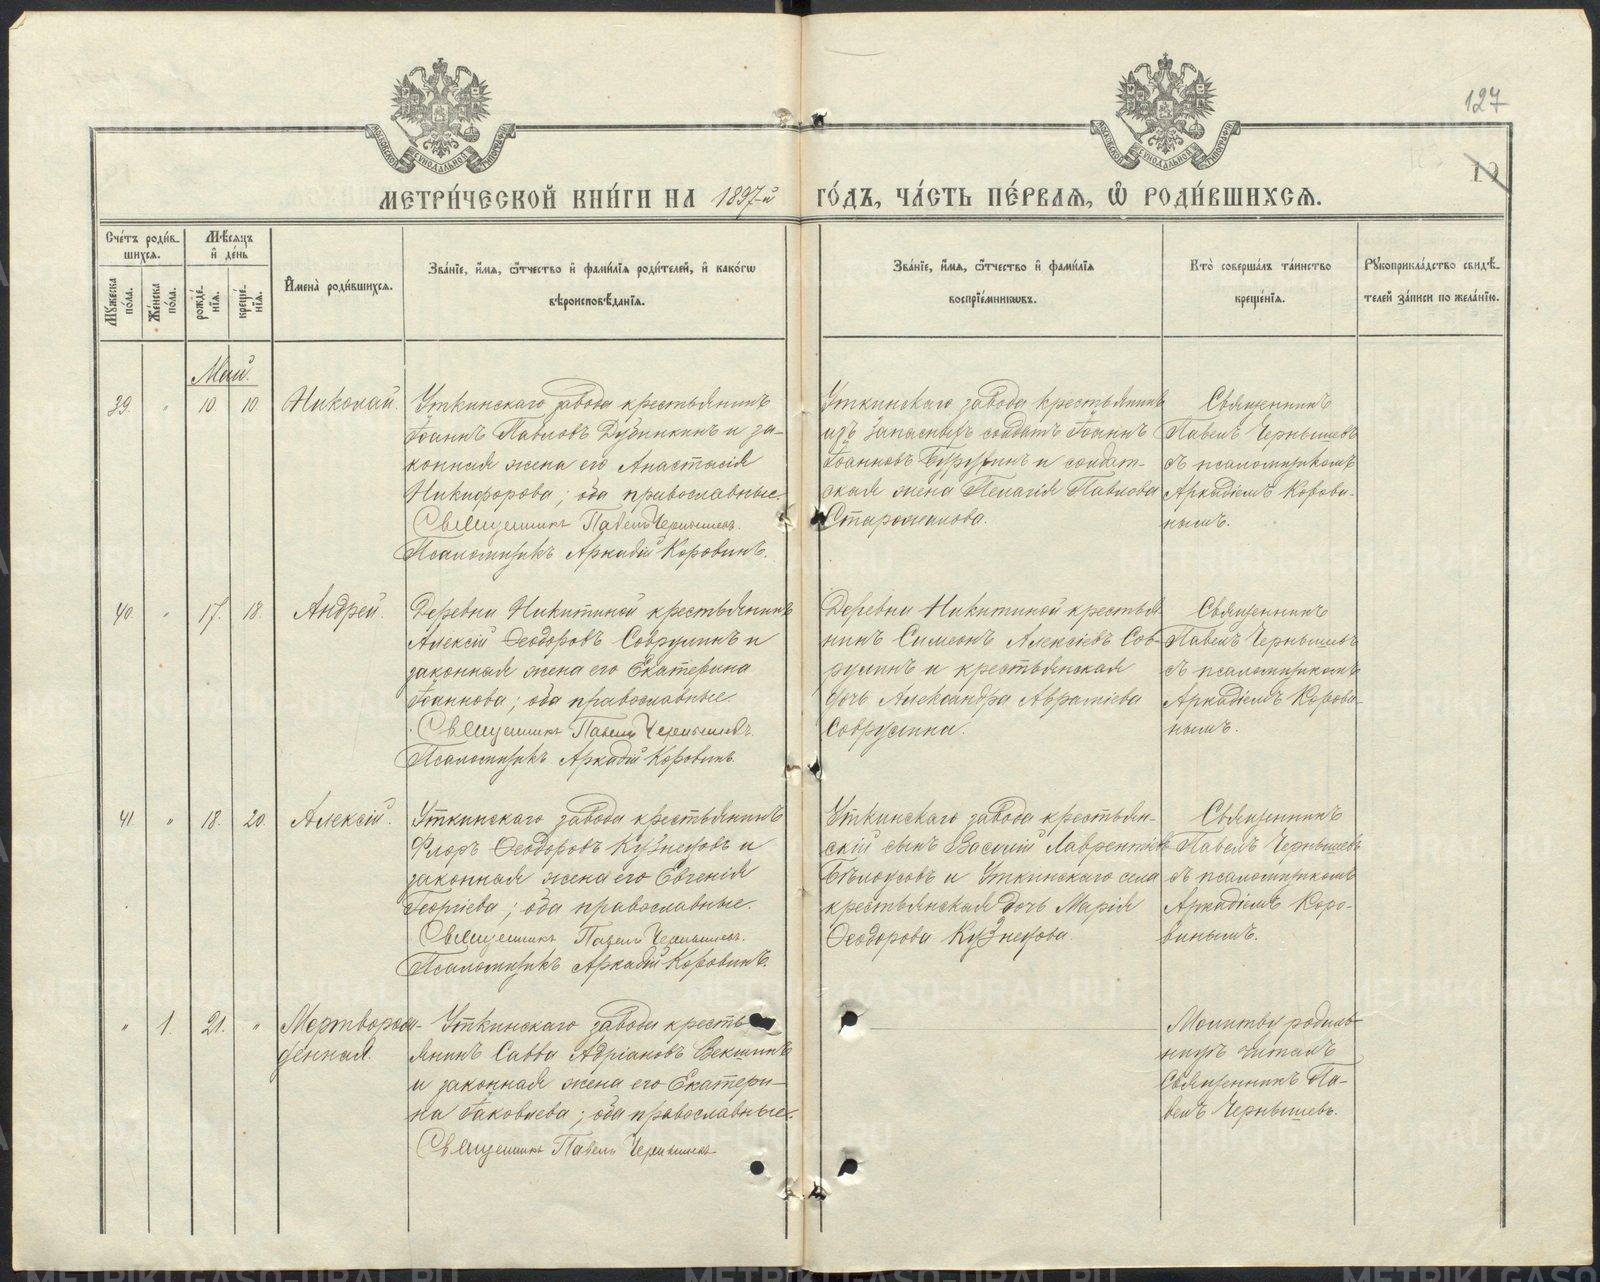 127
12
МОСКОВСКОЙ СѴНОДАЛЬНОЙ ТИПОГРАФІИ
МОСКОВСКОЙ СѴНОДАЛЬНОЙ ТИПОГРАФІИ
МЕТРИ́ЧЕСКОЙ КНИ́ГИ НА 1897-й ГО́ДЪ, ЧА́СТЬ ПЕ́РВАЯ, Ѡ РОДИ́ВШИХСЯ.
Сче́тъ роди́вшихся.
Му́жеска пола.
Же́нска по́ла.
Мѣ́сяцъ и де́нь
рожде́нія.
креще́нія.
Имена̀ роди́вшихся.
Зва́ніе, и́мя, ѻ́тчество и фами́лія роди́телей, и како́гѡ
вѣроисповѣ́данія.
Зва́ніе, и́мя, ѻ́тчество и фами́лія
воспріе́мникѡвъ.
Кто̀ соверша́лъ та́инство
креще́нія.
Рукоприкла́дство свидѣ́-
телей за́писи по жела́нію.
Май.
39. " 10. 10. Николай.
Уткинскаго завода крестьянинъ
Іоаннъ Павловъ Дубинкинъ и за-
конная жена его Анастасія
Никифорова; оба православные.
Священникъ Павелъ Чернышевъ.
Псаломщикъ Аркадій Коровинъ.
Уткинскаго завода крестьянинъ
изъ запасныхъ солдатъ Іоаннъ
Іоанновъ и солдат-
ская жена Пелагія Павлова
Старожилова.
Священникъ
Павелъ Чернышевъ
съ псаломщикомъ
Аркадіемъ Корови-
нымъ.
40. " 17. 18. Андрей.
Деревни Никитиной крестьянинъ
Алексій Ѳеодоровъ Соврулинъ и
законная жена его Екатерина
Іоаннова; оба православные.
Священникъ Павелъ Чернышевъ.
Псаломщикъ Аркадій Коровинъ.
Деревни Никитиной крестья-
нинъ Симеонъ Алексіевъ Сов-
рулинъ и крестьянская
дочь Александра Авраміева
Соврулина.
Священникъ
Павелъ Чернышевъ
съ псаломщикомъ
Аркадіемъ Корови-
нымъ.
41 " 18. 20. Алексій.
Уткинскаго завода крестьянинъ
Флоръ Ѳеодоровъ Кузнецовъ и
законная жена его Евгенія
Георгіева; оба православные.
Священникъ Павелъ Чернышевъ.
Псаломщикъ Аркадій Коровинъ.
Уткинскаго завода крестьян-
скій сынъ Василій Лаврентіевъ
Бѣлоусовъ и Уткинскаго села
крестьянская дочь Марія
Ѳеодорова Кузнецова.
Священникъ
Павелъ Чернышевъ
съ псаломщикомъ
Аркадіемъ Коро-
винымъ.
" 1. 21. " Мертворож-
денная.
Уткинскаго завода кресть-
янинъ Савва Адріановъ Векшинъ
и законная жена его Екатери-
на Іаковлева; оба православные.
Священникъ Павелъ Чернышевъ
Молитву родиль-
ницѣ читалъ
Священникъ Па-
велъ Чернышевъ.
METRIKI.GASO-URAL.RU